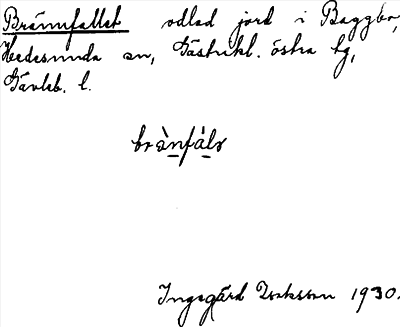 Brännfallet odlad jord i Baggbo,
Hedesunda sn, Gästrikl. östra tg,
Gävleb. l.
Ingegärd Isaksson 1930.